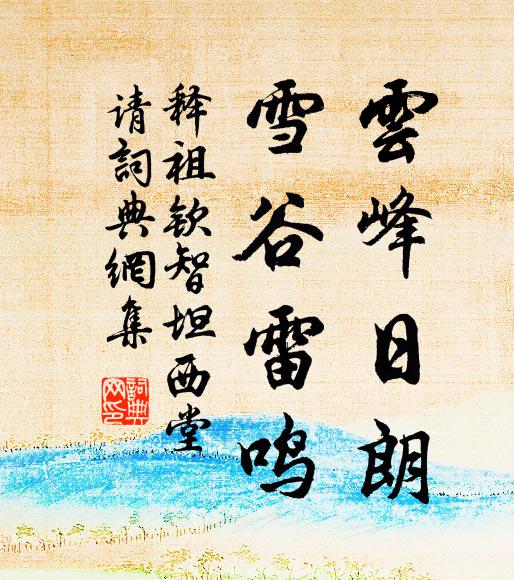 雲峰日朗
雪谷雷鸣
释祖钦智坦西堂
请詞典網集
詞典
网印